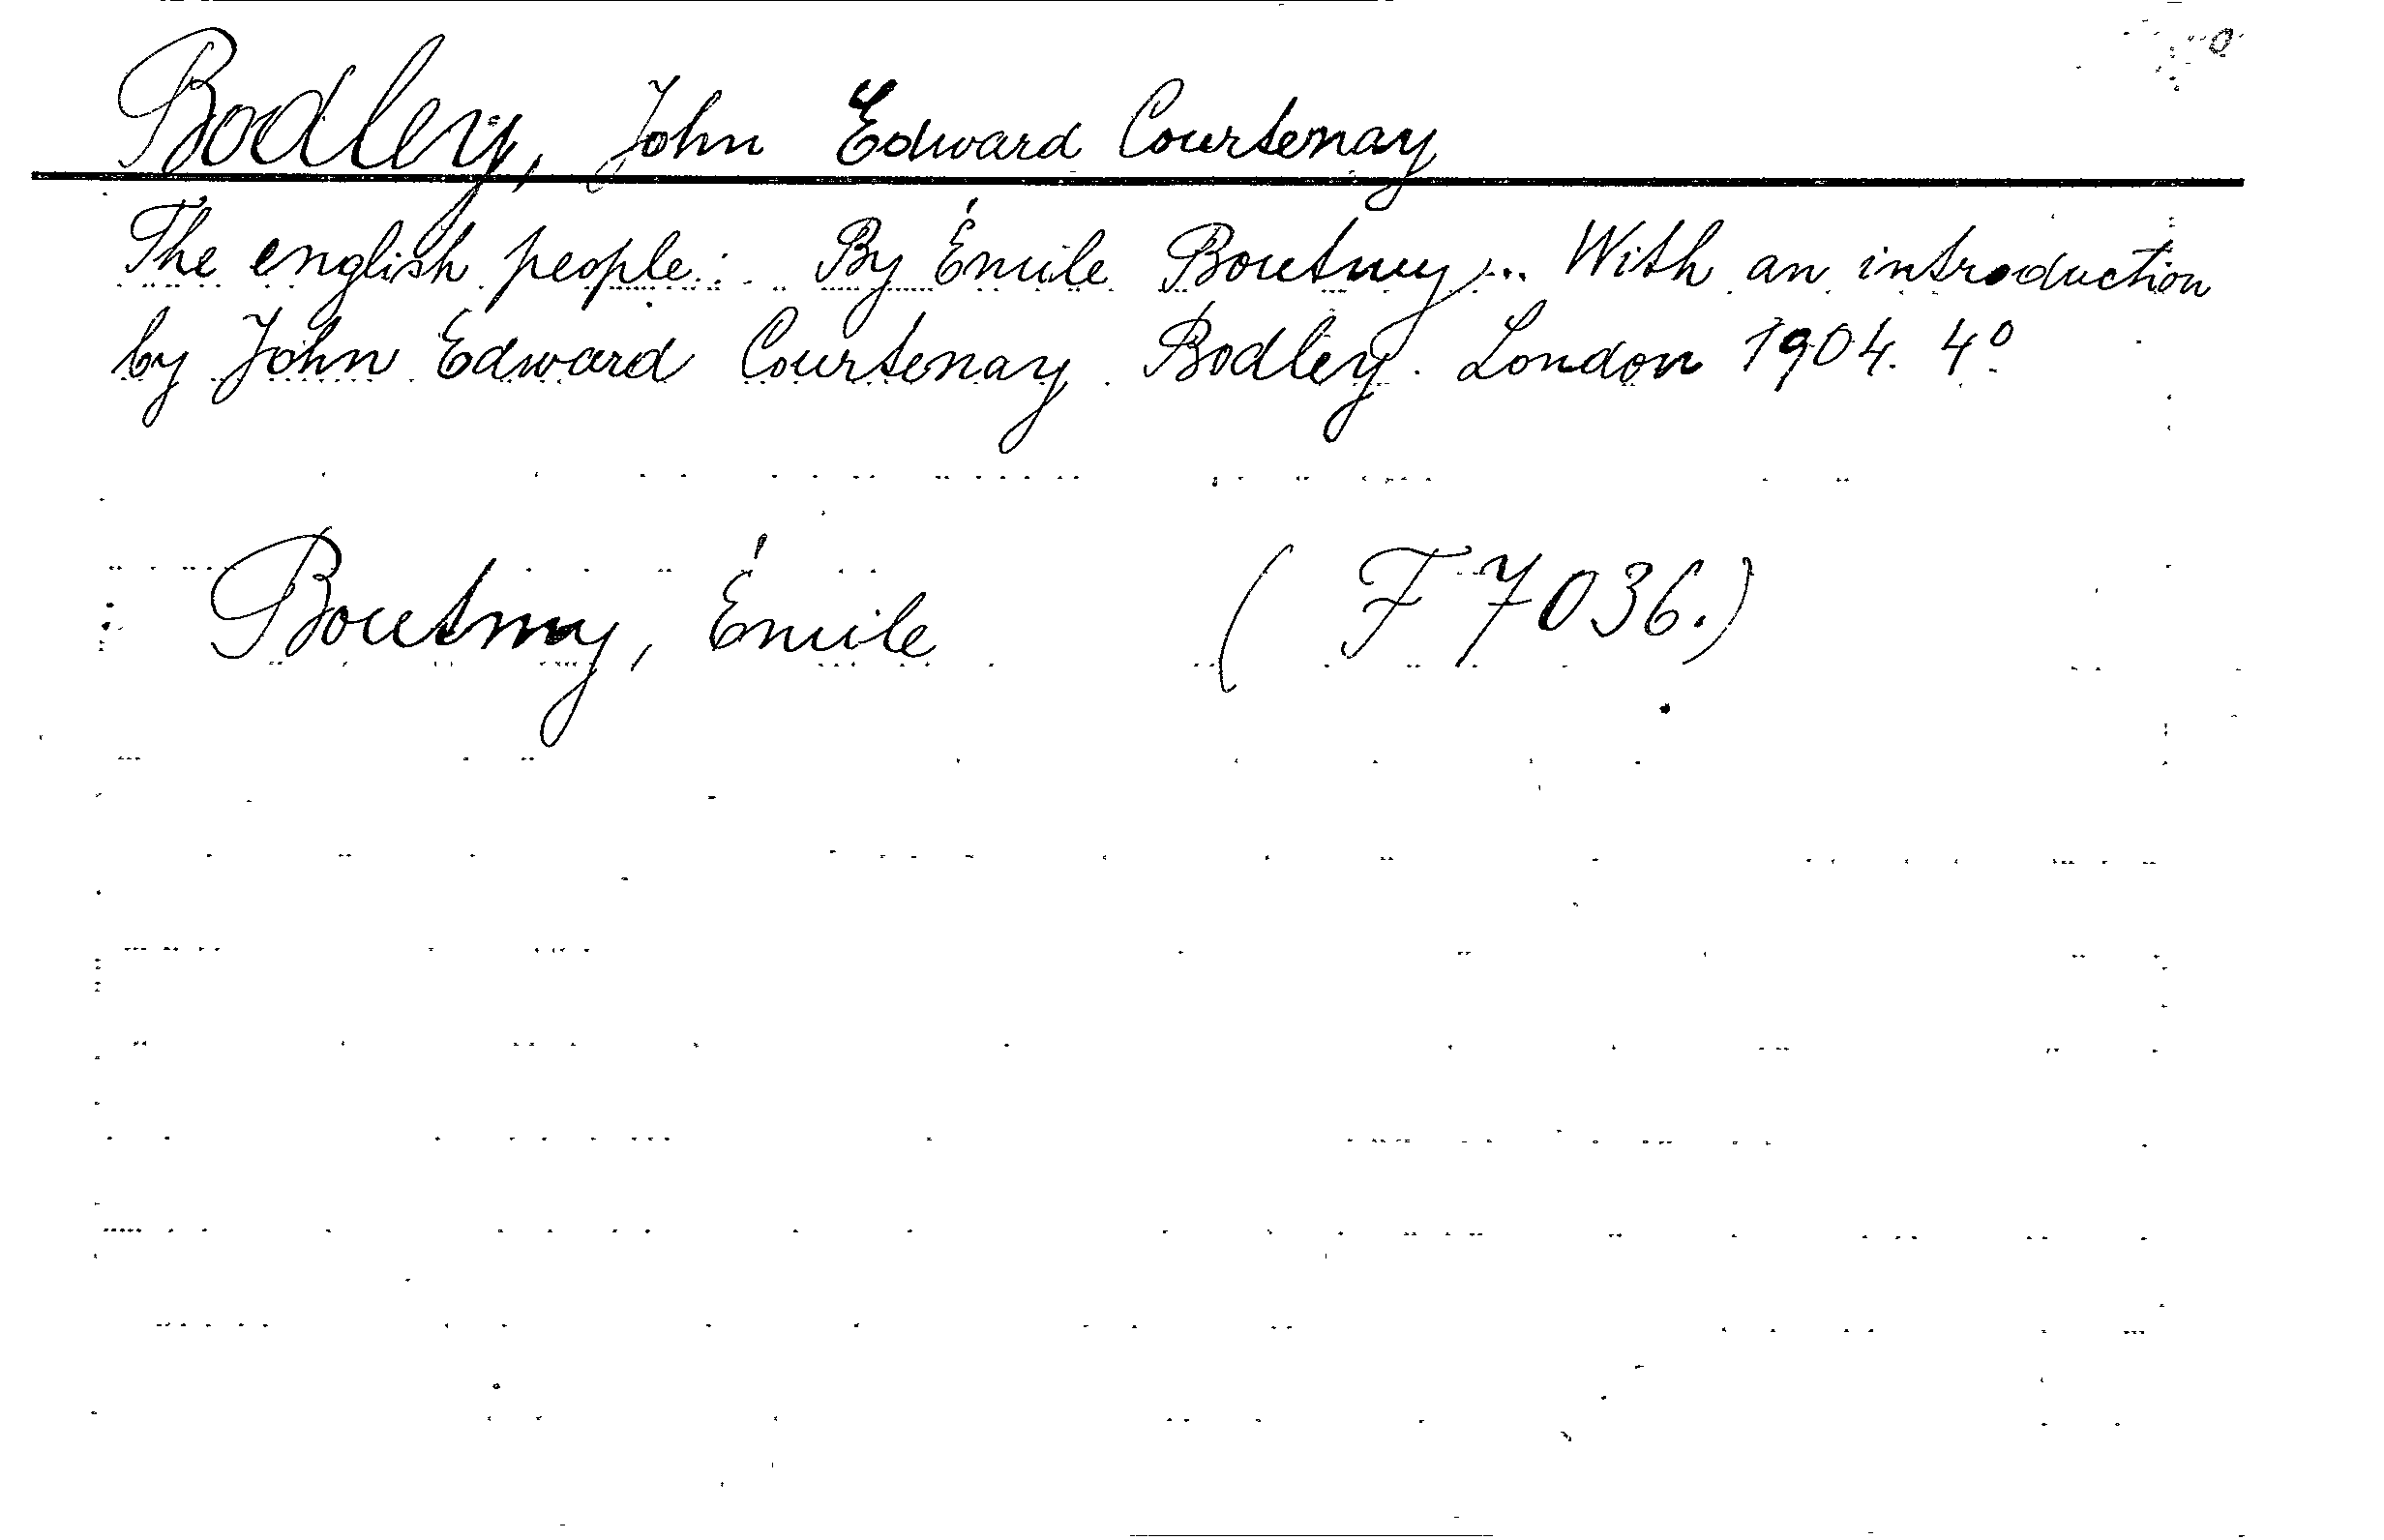 Bodley, John Edward Courtenay
The english people... By Émile Boutmy... With an introduction
by John Edward Courtenay Bodley. London 1904. 4°
Boutmy, Émile (F 7036.)